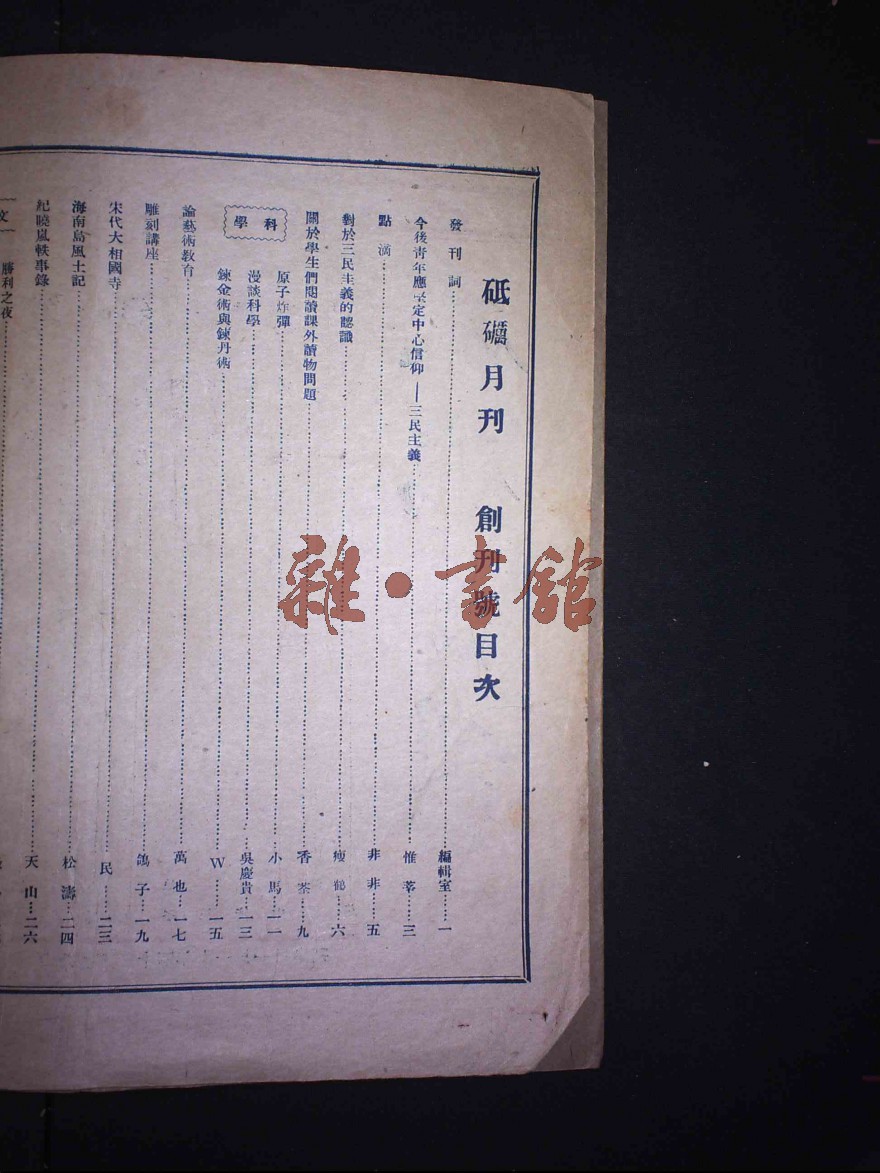 砥礪月刊 創刊號目次
發刊詞…………編輯室……一
今後靑年應堅定中心信仰——三民主義…………惟莘…三
點滴…………非非…五
對於三民主義的認識…………瘦鶴…六
關於學生們閱讀課外讀物問題…………香茶…九
科學
原子炸彈…………小馬…一一
漫談科學…………吳慶貴…一三
鍊金術與鍊丹術…………W……一五
論藝術教育…………萬也…一七
雕刻講座…………鴿子…一九
宋代大相國寺…………民……二三
海南島風土記…………松濤…二四
紀曉嵐軼事錄…………天山…二六
文
勝利之夜…………
雜·書館